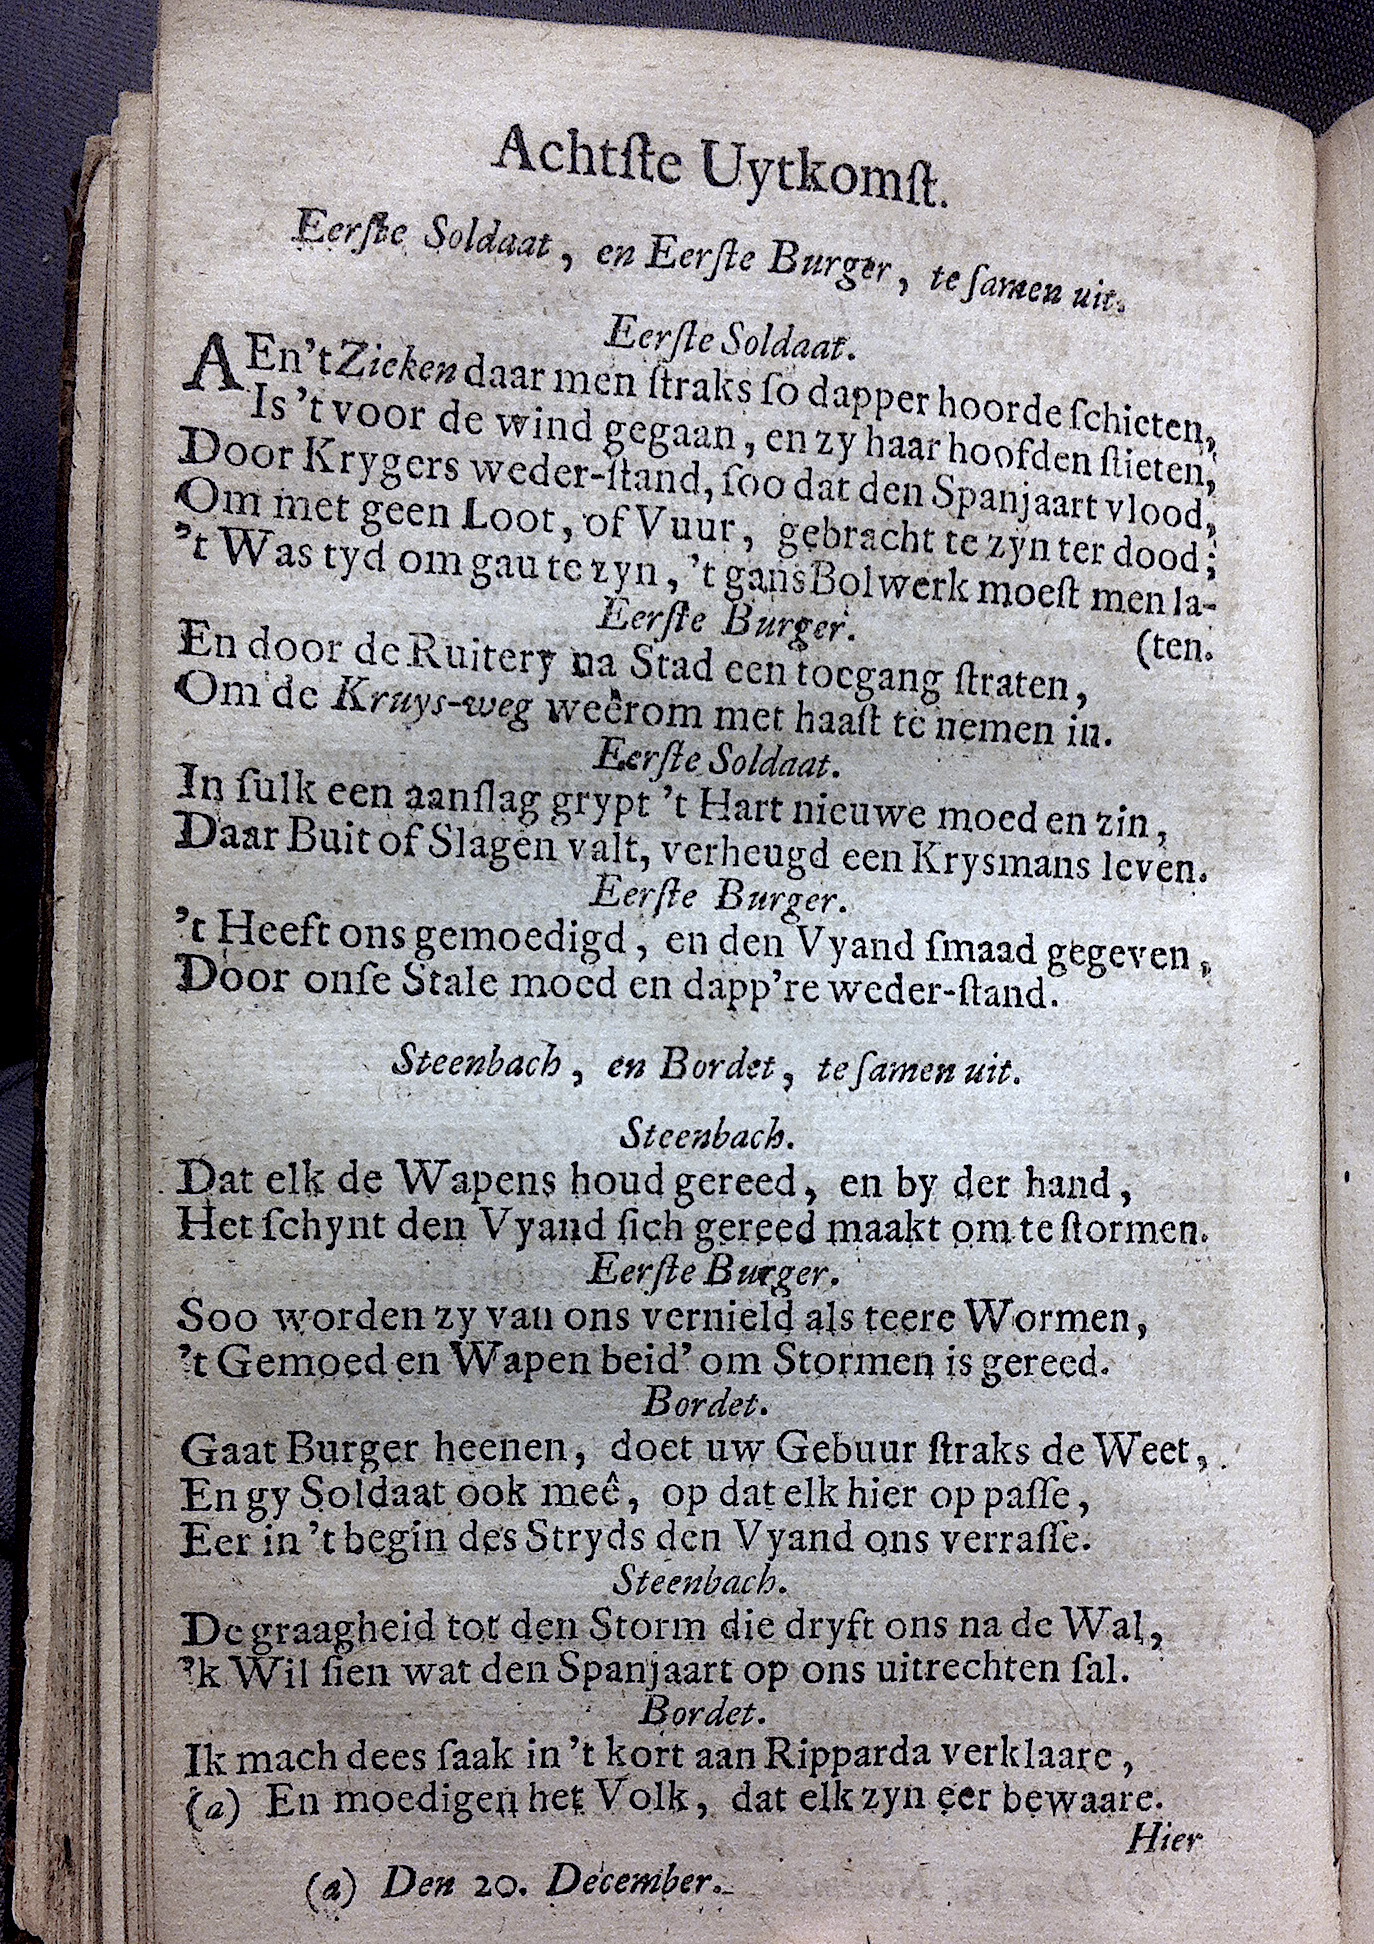 Achtſte Uytkomſt.
Eerſte Soldaat, en Eerſte Burger, te ſamen uit.
Eerſte Soldaat.
AEn't Zieken daar men ſtraks ſo dapper hoorde ſchieten,
Is 't voor de wind gegaan, en zy haar hoofden ſtieten,
Door Krygers weder-ſtand, ſoo dat den Spanjaart vlood,
Om met geen Loot, of Vuur, gebracht te zyn ter dood;
't Was tyd om gau te zyn, 't gans Bolwerk moeſt men la-
(ten.
Eerſte Burger.
En door de Ruitery na Stad een toegang ſtraten,
Om de Kruys-weg weêrom met haaſt te nemen in.
Eerſte Soldaat.
In ſulk een aanſlag grypt 't Hart nieuwe moed en zin,
Daar Buit of Slagen valt, verheugd een Krysmans leven.
Eerſte Burger.
't Heeft ons gemoedigd, en den Vyand ſmaad gegeven,
Door onſe Stale moed en dapp're weder-ſtand.
Steenbach, en Bordet, te ſamen uit.
Steenbach.
Dat elk de Wapens houd gereed, en by der hand,
Het ſchynt den Vyand ſich gereed maakt om te ſtormen.
Eerſte Burger.
Soo worden zy van ons vernield als teere Wormen,
't Gemoed en Wapen beid' om Stormen is gereed.
Bordet.
Gaat Burger heenen, doet uw Gebuur ſtraks de Weet,
En gy Soldaat ook meê, op dat elk hier op paſſe,
Eer in 't begin des Stryds den Vyand ons verraſſe.
Steenbach.
De graagheid tot den Storm die dryft ons na de Wal,
'k Wil ſien wat den Spanjaart op ons uitrechten ſal.
Bordet.
Ik mach dees ſaak in 't kort aan Ripparda verklaare,
(a) En moedigen het Volk, dat elk zyn eer bewaare.
Hier
(a) Den 20. December.